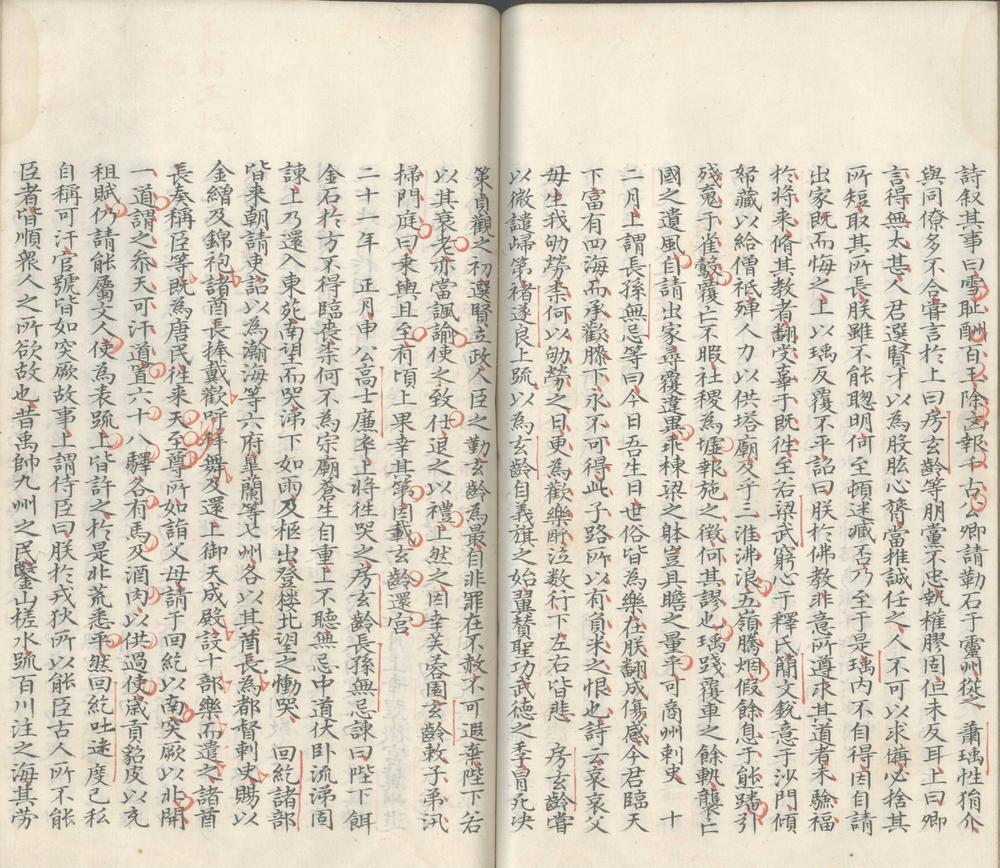 詩叙其事曰雪耻酬百王除凶報千古公卿請勒石于靈州從之 蕭瑀性狷介
與同僚多不合嘗言於上曰房玄齡等朋黨不忠執權膠固但未反耳上曰卿
言得無太甚人君選賢才以為股肱心膂當推誠任之人不可以求備必捨其
所短取其所長朕雖不能聦明何至頓迷臧否乃至于是瑀内不自得因自請
出家既而悔之上以瑀反覆不平詔曰朕於佛教非意所遵求其道者未驗福
於將來脩其教者翻受辜于既徃至若梁武窮心于釋氏簡文銳意于沙門傾
帑藏以給僧祗殫人力以供塔廟及乎三淮沸浪五嶺騰烟假餘息于熊蹯引
殘䰟于雀鷇覆亡不暇社稷為墟報施之徵何其謬也瑀踐覆車之餘軌襲亡
國之遺風自請出家尋覆違異乖棟梁之躰豈具瞻之量乎可商州刺史 十
二月上謂長孫無忌等曰今日吾生日世俗皆為樂在朕翻成傷感今君臨天
下富有四海而承歡膝下永不可得此子路所以有負米之恨也詩云哀哀父
母生我劬勞柰何以劬勞之日更為歡樂酧泣数行下左右皆悲 房玄齡嘗
以微譴歸第褚遂良上疏以為玄齡自義旗之始翼賛聖功武德之季冒死决
策貞觀之初選賢立政人臣之勤玄齡為最自非罪在不赦不可遐棄陛下若
以其衰老亦當諷諭使之致仕退之以禮上然之因幸芙蓉園玄齡敕子弟汛
掃門庭曰乗輿且至有頃上果幸其第因載玄齡還宫
二十一年正月申公高士廉卒上將徃哭之房玄齡長孫無忌諫曰陛下餌
金石於方不得臨喪柰何不為宗廟蒼生自重上不聽無忌中道伏卧流涕固
諫上乃還入東苑南望而哭涕下如雨及柩出登樓北望之慟哭 回紇諸部
皆来朝請吏詔以為瀚海等六府皐蘭等七州各以其酋長為都督刺史賜以
金繒及錦袍諸酋長捧戴歡呼拜舞及還上御天成殿設十部樂而遣之諸酋
長奏稱臣等既為唐民徃来天至尊所如詣父母請于回紇以南突厥以北開
一道謂之叅天可汗道置六十八驛各有馬及酒肉以供過使歲貢貂皮以充
租賦仍請能屬文人使為表疏上皆許之於是北荒悉平然回紇吐迷度已私
自稱可汗官號皆如突厥故事上謂侍臣曰朕於戎狄所以能臣古人所不能
臣者皆順衆人之所欲故也昔禹帥九州之民鑿山槎水疏百川注之海其劳